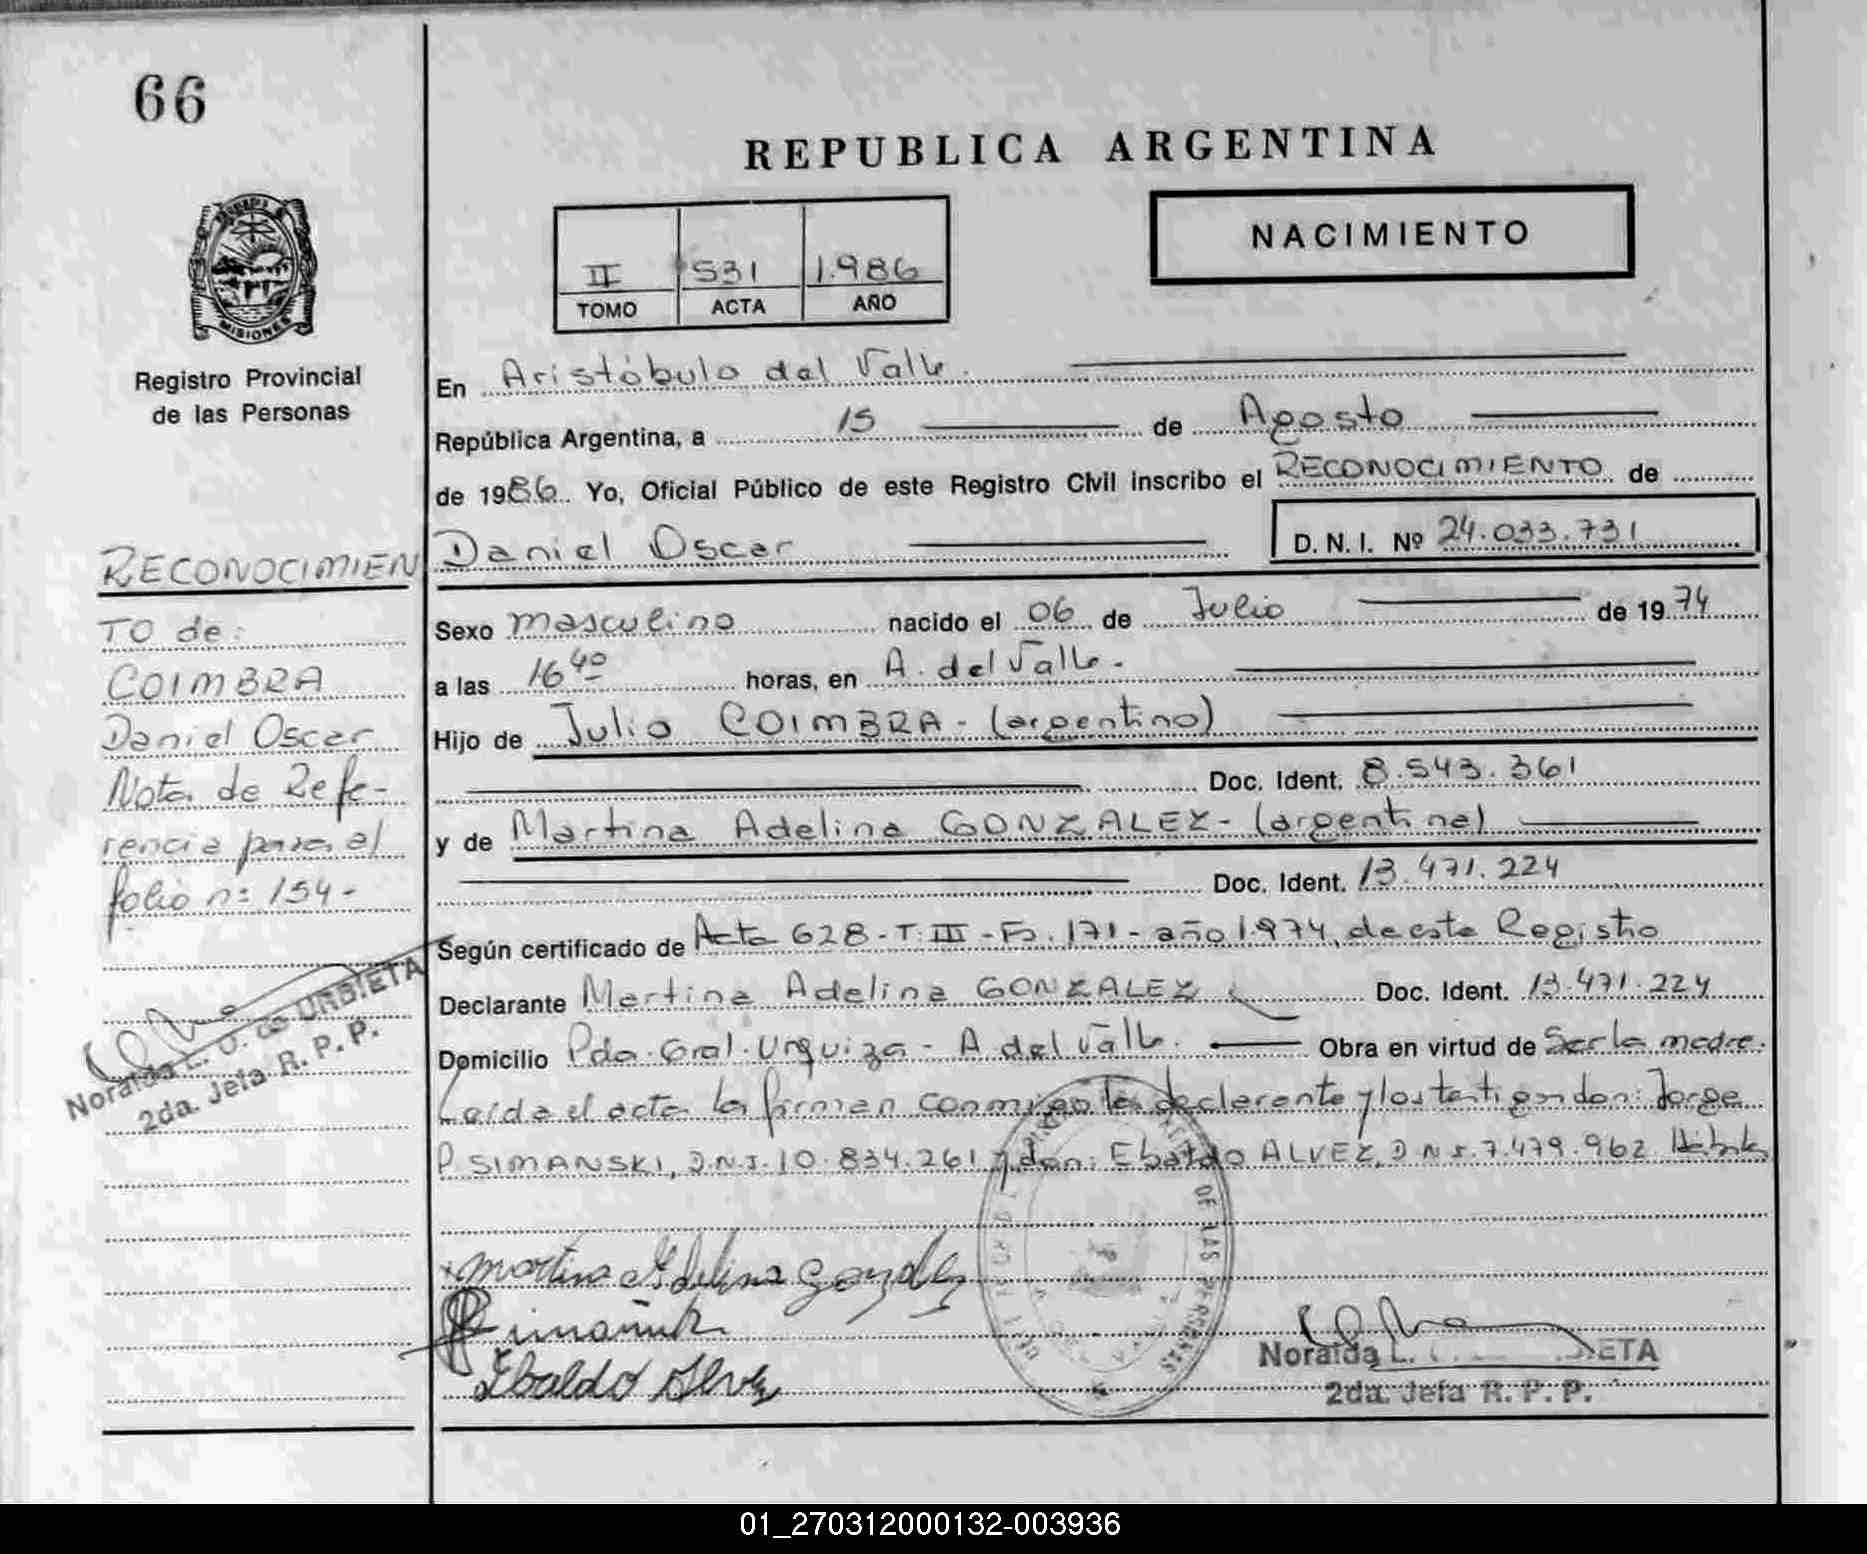 66
REPUBLICA ARGENTINA
NACIMIENTO
II 531 1.986
TOMO ACTA AÑO
MISIONES
Registro Provincial
de las Personas
En Aristóbulo del Valle.
República Argentina, a 15 de Agosto
de 1986. Yo, Oficial Público de este Registro Civil inscribo el RECONOCIMIENTO de
Daniel Oscar D. N. I. Nº 24.033.731
Sexo masculino nacido el 06 de Julio de 1974
a las 16 40 horas, en A. del Valle.
Hijo de Julio COIMBRA - (argentino)
Doc. Ident. 8.543.361
y de Martina Adelina GONZALEZ - (argentina)
Doc. Ident. 13.471.224
Según certificado de Acta 628 - T. III - Fo. 171 - año 1.974, de este Registro
Declarante Martina Adelina GONZALEZ Doc. Ident. 13.471.224
Domicilio Pdo. Gral. Urquiza - A. del Valle. Obra en virtud de Ser la madre.
Leída el acta la firman conmigo la declarante y los testigos don: Jorge
P. SIMANSKI, D.N.I. 10.834.261 y don: Ebaldo ALVEZ, D.N.I. 7.479.962
Martina Adelina Gonzalez
Ebaldo Alvez
DE LAS PERSONAS
Noraida L. ETA
2da. Jefa R. P. P.
RECONOCIMIEN
TO de:
COIMBRA
Daniel Oscar
Nota de Refe-
rencia para el
folio nº 154-
Noraida L. U. de URBIETA
2da. Jefa R. P. P.
01_270312000132-003936